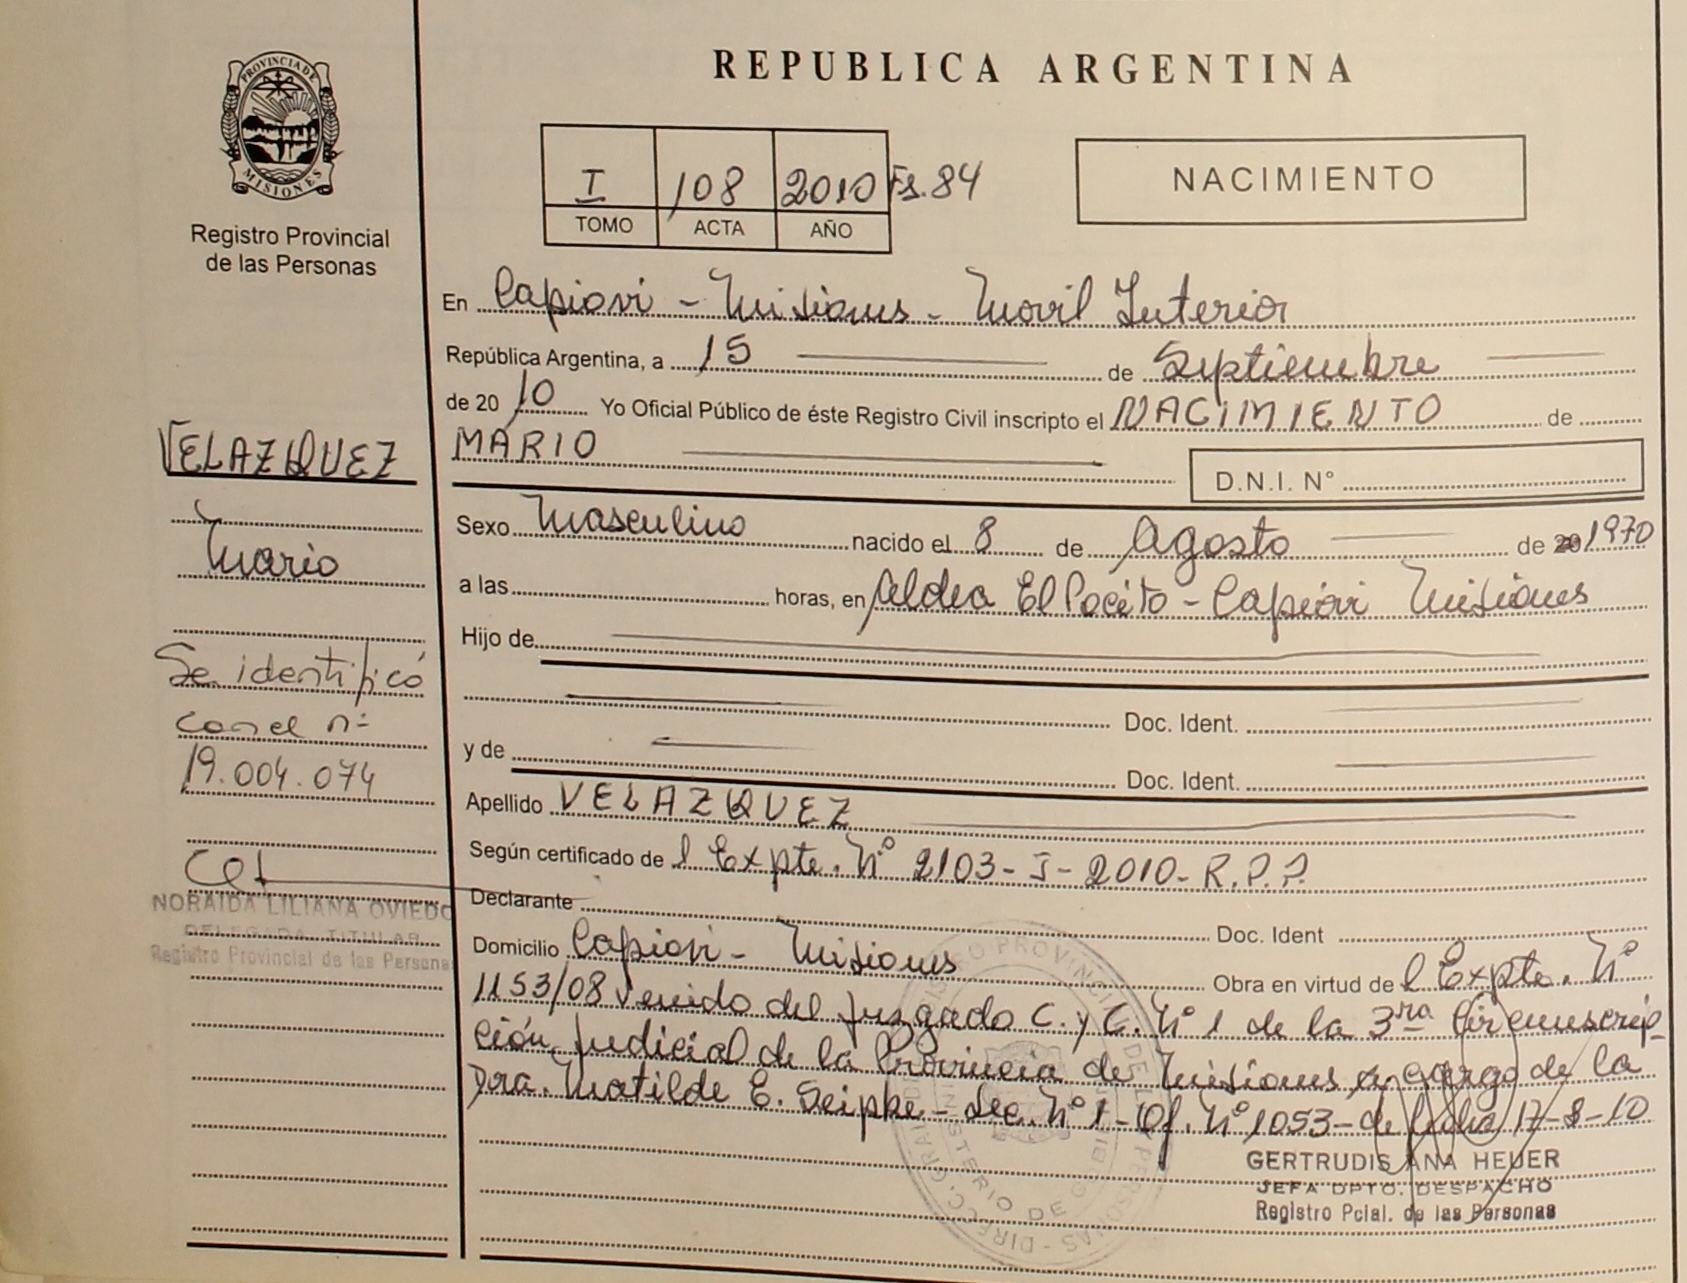 PROVINCIA DE
MISIONES
Registro Provincial
de las Personas
REPUBLICA ARGENTINA
I 108 2010 Fs. 84
TOMO ACTA AÑO
NACIMIENTO
En Capiovi - Misiones - Movil Interior
República Argentina, a 15 de Septiembre
de 2010 Yo Oficial Público de éste Registro Civil inscripto el NACIMIENTO de
MARIO
D.N.I. N°
Sexo Masculino nacido el 8 de Agosto de 20 1970
a las horas, en Aldea El Pocito - Capiovi Misiones
Hijo de
Doc. Ident.
y de
Doc. Ident.
Apellido VELAZQUEZ
Según certificado de l Expte. N° 2103-I-2010-R.P.P.
Declarante
Doc. Ident
Domicilio Capiovi - Misiones Obra en virtud de l Expte. N°
1153/08 Venido del Juzgado C. y C. N° 1 de la 3ra Circunscrip-
ción Judicial de la Provincia de Misiones a cargo de la
Dra. Matilde E. Seipke - Sec. N° 1 - Of. N° 1053 - de fecha 17-8-10
GERTRUDIS ANA HEUER
JEFA DPTO. DESPACHO
Registro Pcial. de las Personas
VELAZQUEZ
Mario
Se identificó
con el n°
19.004.074
NORAIDA LILIANA OVIEDO
DELEGADA TITULAR
Registro Provincial de las Persona